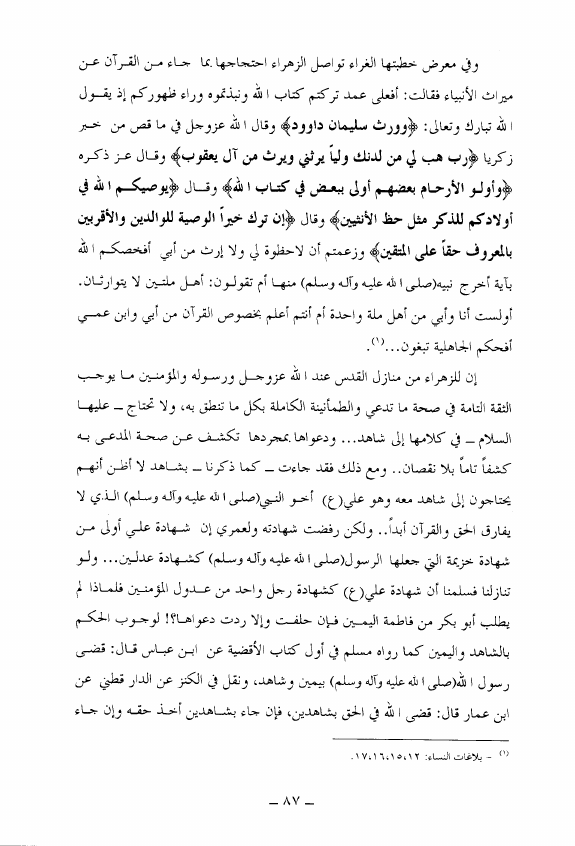 وفي معرض خطبتها الغراء تواصل الزهراء احتجاجها بما جاء من القرآن عن
ميراث الأنبياء فقالت: أفعلى عمد تركتم كتاب الله ونبذتموه وراء ظهوركم إذ يقول
الله تبارك وتعالى: ﴿وورث سليمان داوود﴾ وقال الله عزوجل في ما قص من خبر
زكريا ﴿رب هب لي من لدنك ولياً يرثني ويرث من آل يعقوب﴾ وقال عز ذكره
﴿وأولو الأرحام بعضهم أولى ببعض في كتاب الله﴾ وقال ﴿يوصيكم الله في
أولادكم للذكر مثل حظ الأنثيين﴾ وقال ﴿إن ترك خيراً الوصية للوالدين والأقربين
بالمعروف حقاً على المتقين﴾ وزعمتم أن لاحظوة لي ولا إرث من أبي أفخصكم الله
بآية أخرج نبيه(صلى الله عليه وآله وسلم) منها أم تقولون: أهل ملتين لا يتوارثان.
أولست أنا وأبي من أهل ملة واحدة أم أنتم أعلم بخصوص القرآن من أبي وابن عمي
أفحكم الجاهلية تبغون...(١).
إن للزهراء من منازل القدس عند الله عزوجل ورسوله والمؤمنين ما يوجب
الثقة التامة في صحة ما تدعي والطمأنينة الكاملة بكل ما تنطق به، ولا تحتاج ـ عليها
السلام ـ في كلامها إلى شاهد... ودعواها بمجردها تكشف عن صحة المدعى به
كشفاً تاماً بلا نقصان.. ومع ذلك فقد جاءت ـ كما ذكرنا ـ بشاهد لا أظن أنهم
يحتاجون إلى شاهد معه وهو علي(ع) أخو النبي(صلى الله عليه وآله وسلم) الذي لا
يفارق الحق والقرآن أبداً.. ولكن رفضت شهادته ولعمري إن شهادة علي أولى من
شهادة خزيمة التي جعلها الرسول(صلى الله عليه وآله وسلم) كشهادة عدلين... ولو
تنازلنا فسلمنا أن شهادة علي(ع) كشهادة رجل واحد من عدول المؤمنين فلماذا لم
يطلب أبو بكر من فاطمة اليمين فإن حلفت وإلا ردت دعواها؟! لوجوب الحكم
بالشاهد واليمين كما رواه مسلم في أول كتاب الأقضية عن ابن عباس قال: قضى
رسول الله(صلى الله عليه وآله وسلم) بيمين وشاهد، ونقل في الكنز عن الدار قطني عن
ابن عمار قال: قضى الله في الحق بشاهدين، فإن جاء بشاهدين أخذ حقه وإن جاء
(١) - بلاغات النساء: ١٢،١٥،١٦،١٧.
ـ ٨٧ ـ